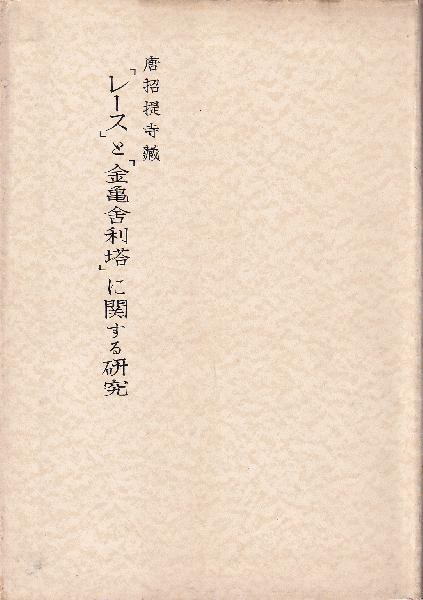 唐招提寺蔵
「レース」と「金亀舎利塔」に関する研究